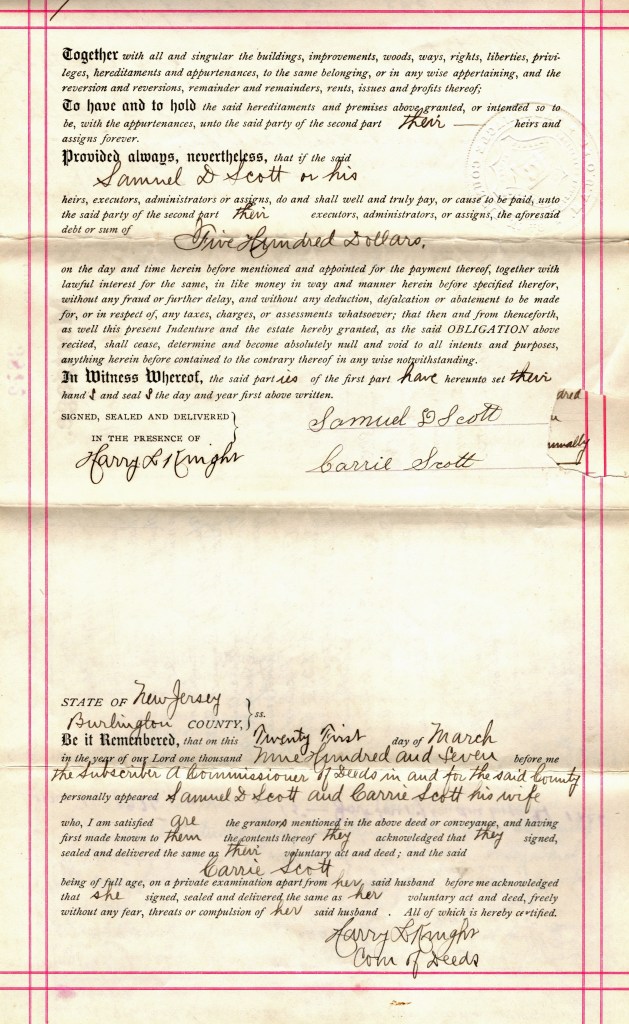 Together with all and singular the buildings, improvements, woods, ways, rights, liberties, privi-
leges, hereditaments and appurtenances, to the same belonging, or in any wise appertaining, and the
reversion and reversions, remainder and remainders, rents, issues and profits thereof;
To have and to hold the said hereditaments and premises above granted, or intended so to
be, with the appurtenances, unto the said party of the second part their heirs and
assigns forever.
Provided always, nevertheless, that if the said
Samuel D Scott or his
heirs, executors, administrators or assigns, do and shall well and truly pay, or cause to be paid, unto
the said party of the second part their executors, administrators, or assigns, the aforesaid
debt or sum of
Five Hundred Dollars,
on the day and time herein before mentioned and appointed for the payment thereof, together with
lawful interest for the same, in like money in way and manner herein before specified therefor,
without any fraud or further delay, and without any deduction, defalcation or abatement to be made
for, or in respect of, any taxes, charges, or assessments whatsoever; that then and from thenceforth,
as well this present Indenture and the estate hereby granted, as the said OBLIGATION above
recited, shall cease, determine and become absolutely null and void to all intents and purposes,
anything herein before contained to the contrary thereof in any wise notwithstanding.
In Witness Whereof, the said parties of the first part have hereunto set their
hand s and seal s the day and year first above written.
SIGNED, SEALED AND DELIVERED
IN THE PRESENCE OF
Harry L Knight
Samuel D Scott
Carrie Scott
STATE OF New Jersey
Burlington COUNTY, } ss.
Be it Remembered, that on this Twenty First day of March
in the year of our Lord one thousand Nine Hundred and Seven before me
the Subscriber A Commissioner of Deeds in and for the said County
personally appeared Samuel D Scott and Carrie Scott his wife
who, I am satisfied are the grantors mentioned in the above deed or conveyance, and having
first made known to them the contents thereof they acknowledged that they signed,
sealed and delivered the same as their voluntary act and deed; and the said
Carrie Scott
being of full age, on a private examination apart from her said husband before me acknowledged
that she signed, sealed and delivered the same as her voluntary act and deed, freely
without any fear, threats or compulsion of her said husband . All of which is hereby certified.
Harry L Knight
Com of Deeds